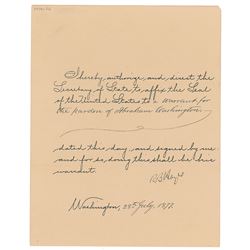 I hereby authorize and direct the
Secretary of State to affix the Seal
of the United States to a Warrant for
the pardon of Abraham Washington
dated this day, and signed by me
and for so doing this shall be his
warrant.
R B Hayes
Washington, 28th July, 1877.